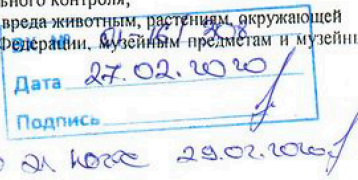 ьного контроля;
вреда животным, растениям, окружающей
Федерации, музейным предметам и музейны
Дата 27.02.2020
Подпись
29.02.2020г